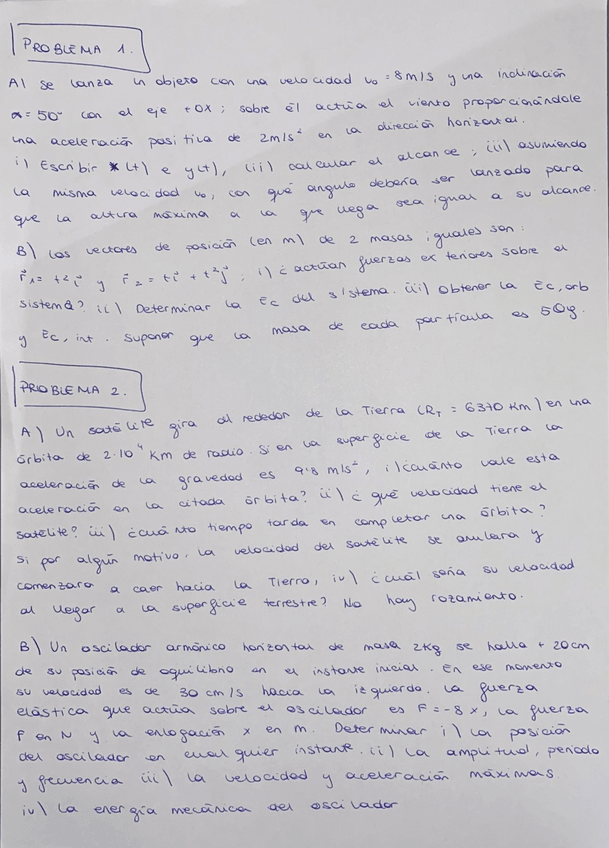 PROBLEMA 1.
A) se lanza un objeto con una velocidad v₀ = 8m/s y una inclinación
α = 50º con el eje +OX ; sobre él actúa el viento proporcionándole
una aceleración positiva de 2m/s² en la dirección horizontal.
i) Escribir x(t) e y(t), (ii) calcular el alcance ; (iii) asumiendo
la misma velocidad v₀, con qué angulo debería ser lanzado para
que la altura máxima a la que llega sea igual a su alcance.
B) Los vectores de posición (en m) de 2 masas iguales son :
r⃗₁= t²i⃗ y r⃗₂ = ti⃗ + t²j⃗ ; i) ¿ actúan fuerzas exteriores sobre el
sistema? ii) Determinar la Ec del sistema. iii) Obtener la Ec,orb
y Ec, int . Suponer que la masa de cada partícula es 50g.
PROBLEMA 2.
A) Un satélite gira alrededor de la Tierra (R_T = 6370 Km) en una
órbita de 2·10⁴ Km de radio. Si en la superficie de la Tierra la
aceleración de la gravedad es 9'8 m/s², i) cuánto vale esta
aceleración en la citada órbita? ii) ¿ qué velocidad tiene el
satélite? iii) ¿cuánto tiempo tarda en completar una órbita?
Si por algún motivo. la velocidad del satélite se anulara y
comenzara a caer hacia la Tierra, iv) ¿cuál sería su velocidad
al llegar a la superficie terrestre? No hay rozamiento.
B) Un oscilador armónico horizontal de masa 2Kg se halla + 20cm
de su posición de equilibrio en el instante inicial. En ese momento
su velocidad es de 30 cm/s hacia la izquierda. La fuerza
elástica que actúa sobre el oscilador es F=-8x, la fuerza
F en N y la enlogación x en m. Determinar i) la posición
del oscilador en cualquier instante. ii) La amplitud, periodo
y frecuencia iii) la velocidad y aceleración máximas
iv) la energía mecánica del oscilador